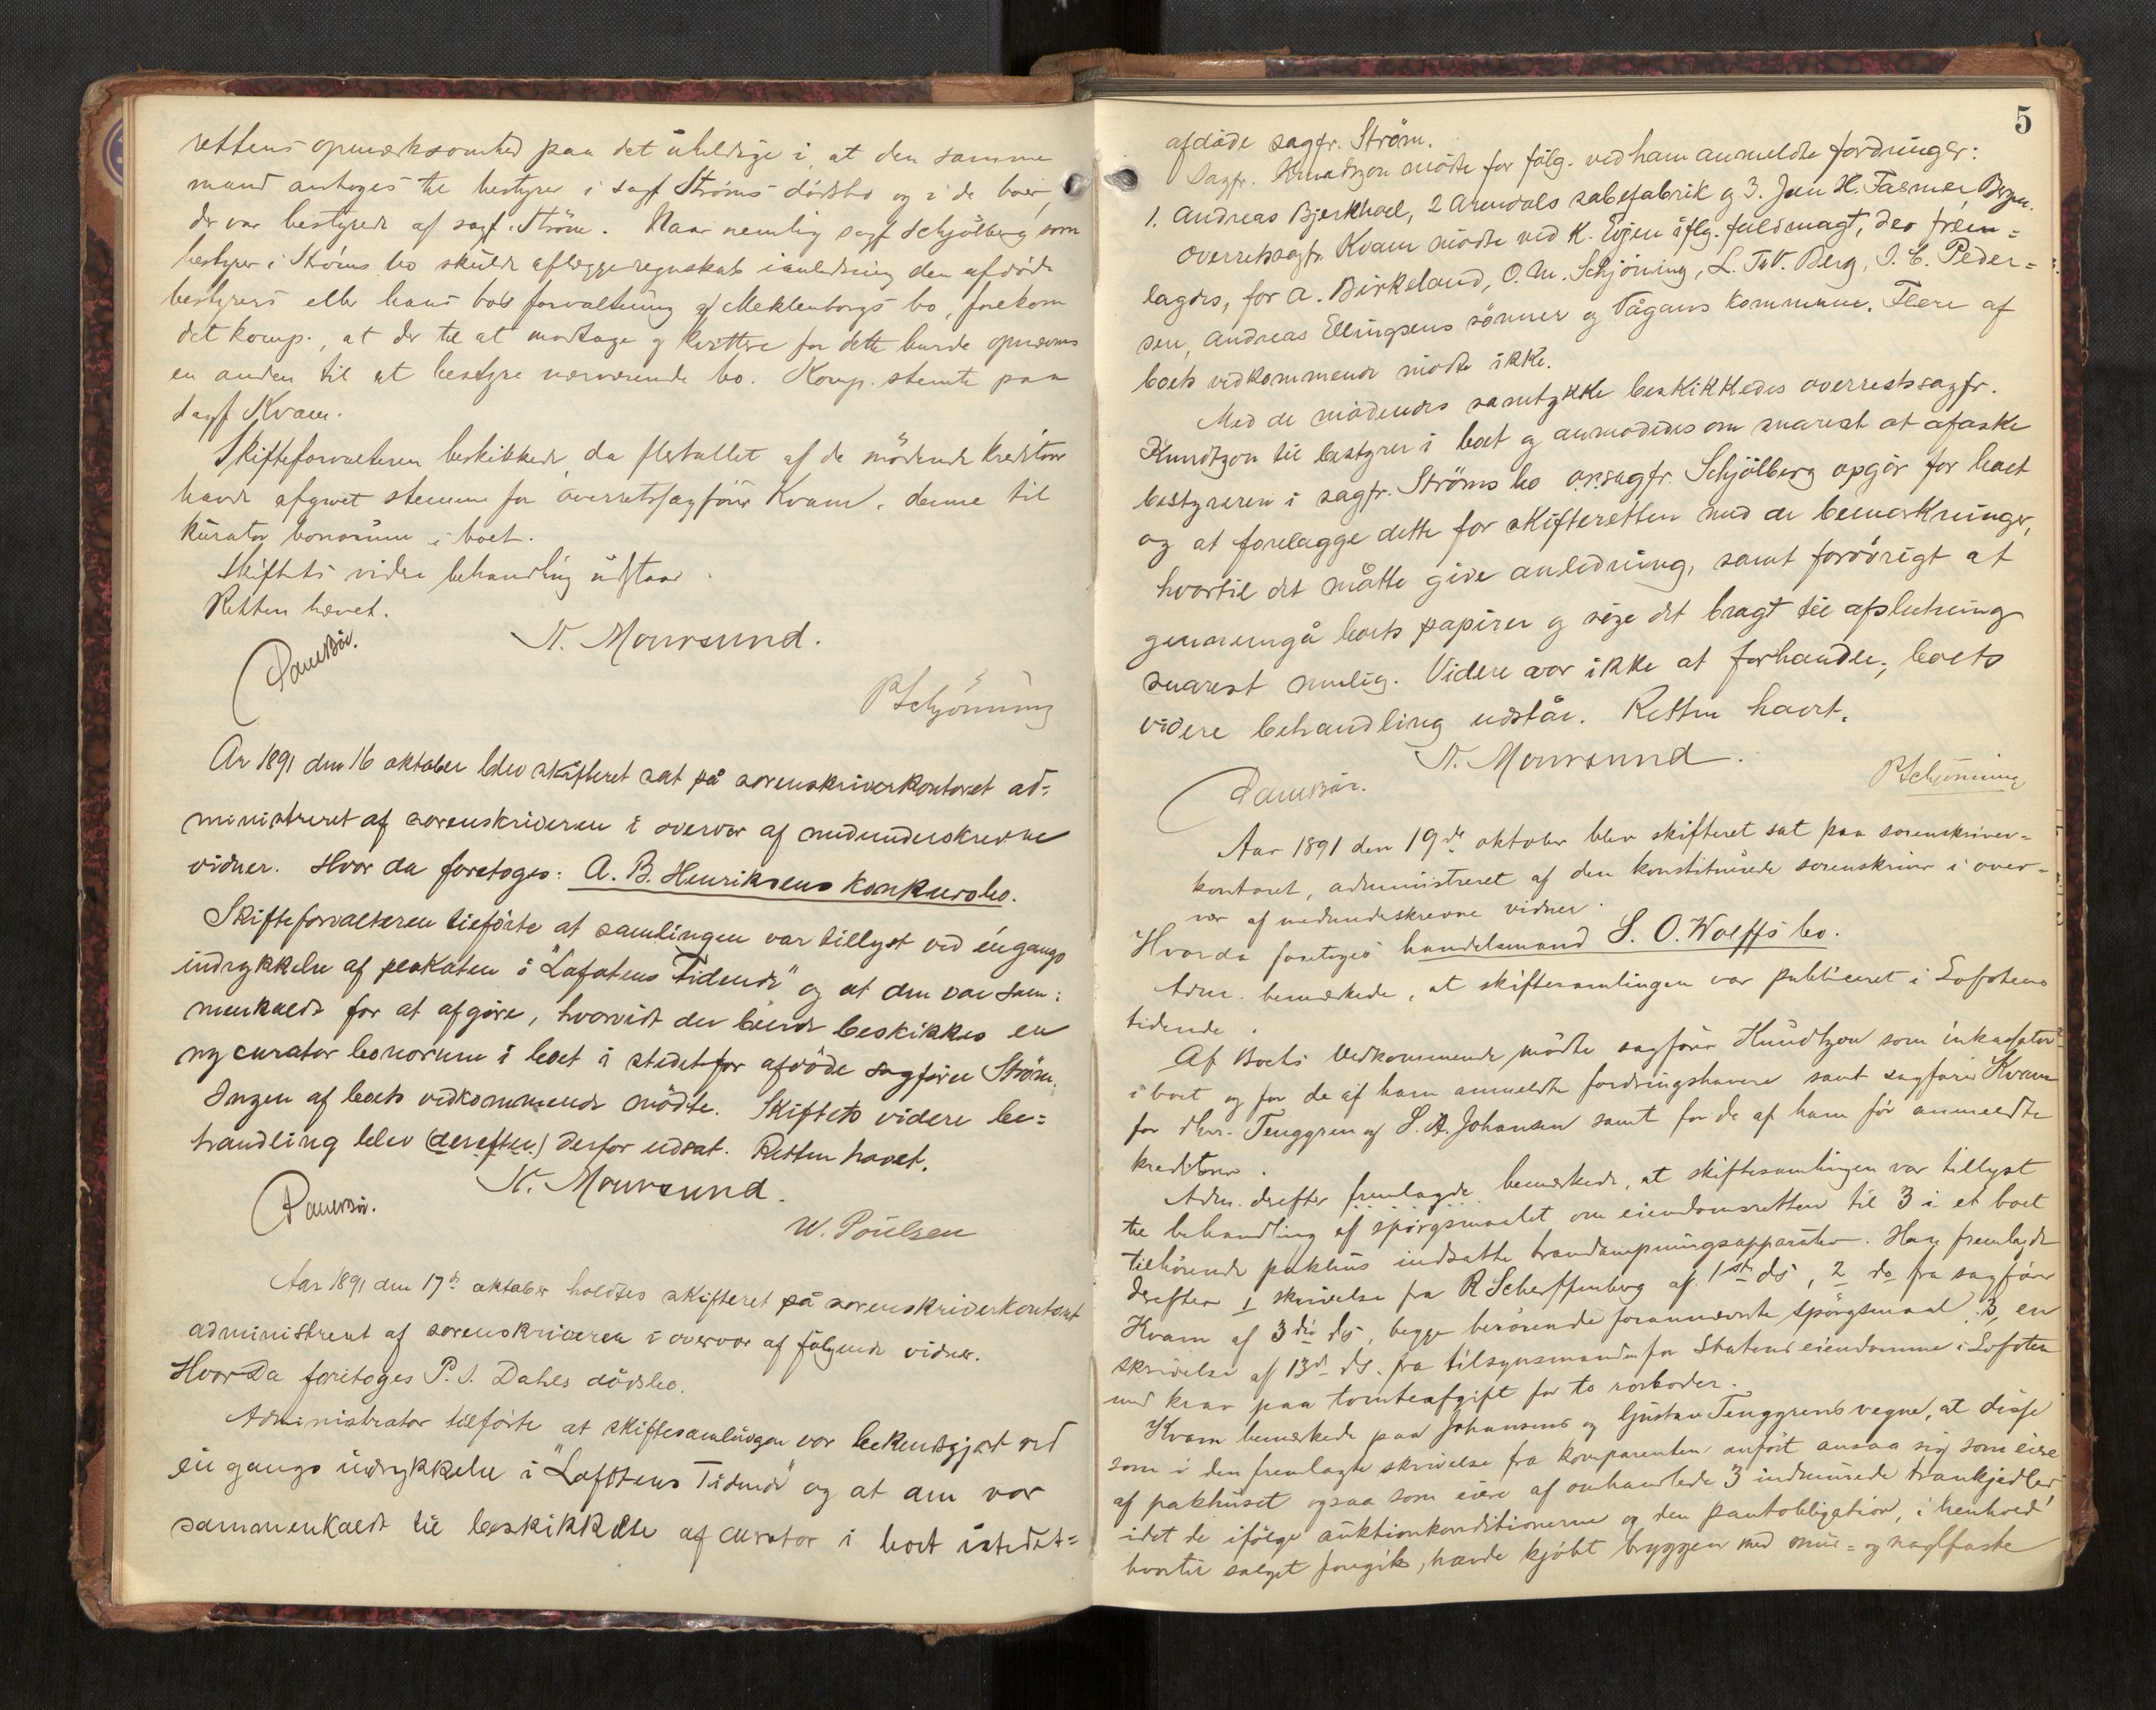 rettens opmærksomhed paa det uheldige i, at den samme
mand antoges til bestyrer i sagf Strøms dødsbo og i de boer,
der var bestyrede af sagf. Strøm. Naar nemlig sagf Schjølberg som
bestyrer i Strøms bo skulde aflægge regnskab i anledning den afdøde
bestyrers eller hans bos forvaltning af Meklenborgs bo, forekom
det komp., at der til at modtage og kvittere for dette burde opnævnes
en anden til at bestyre nærværende bo. Komp. stemte paa
sagf Kvam.
Skifteforvalteren beskikkede, da flertallet af de mødende kreditorer
havde afgivet stemme for overretssagfører Kvam, denne til
kurator bonorum i boet.
Skiftets videre behandling udstaar.
Retten hævet.
N. Moursund.
P Schjönning
År 1891 den 16 oktober blev skifteret sat på sorenskriverkontoret ad=
ministreret af sorenskriveren i overvær af medunderskrevne
vidner. Hvor da foretoges: A. B. Henriksens konkursbo.
Skifteforvalteren tilførte at samlingen var tillyst ved én gangs
indrykkelse af plakaten i "Lofotens Tidende" og at den var sam=
menkaldt for at afgöre, hvorvidt der burde beskikkes en
ny curator bonorum i boet i stedet for afdöde sagförer Ström.
Ingen af boets vedkommende mödte. Skiftets videre be=
handling blev (derefter) derfor udsat. Retten hævet.
N. Moursund.
W. Poulsen
Aar 1891 den 17de oktober holdtes skifteret på sorenskriverkontoret
administreret af sorenskriveren i overvær af følgende vidner.
Hvor da foretoges P. J. Dahls dödsbo.
Administrator tilförte at skiftesamlingen var bekendtgjort ved
én gangs indrykkelse i "Lofotens Tidende" og at den var
sammenkaldt til beskikkelse af curator i boet istedet=
5
afdöde sagfr. Ström.
Sagfr. Knudtzon mödte for fölg. ved ham anmeldte fordringer:
1. Andreas Bjerkhoel, 2 Arendals sabefabrik og 3. Jan H. Fasmer Bergen.
Overretssagfr. Kvam mödte ved K. Evjen iflg. fuldmagt, der frem=
lagdes, for A. Birkeland, O. M. Schjöning, L. Berg, I. C. Peder=
sen, Andreas Ellingsens sönner og Vågans kommune. Flere af
boets vedkommende mödte ikke.
Med de mödendes samtykke beskikkedes overretssagfr.
Knudtzon til bestyrer i boet og anmodedes om snarest at afæske
bestyreren i sagfr. Ströms bo o.r.sagfr. Schjölberg opgör for boet
og at forelægge dette for skifteretten med de bemærkninger,
hvortil det måtte give anledning, samt forövrigt at
gennemgå boets papirer og söge det bragt til afslutning
snarest mulig. Videre var ikke at forhandle; boets
videre behandling udstår. Retten hævet.
N. Moursund.
P Schjönning
Aar 1891 den 19de oktober blev skifteret sat paa sorenskriver=
kontoret, administreret af den konstituerede sorenskriver i over=
vær af medunderskrevne vidner.
Hvor da foretoges handelsmand S. O. Wolffs bo.
Adm. bemærkede, at skiftesamlingen var publiceret i Lofotens
tidende.
Af Boets Vedkommende mødte sagfører Knudtzon som inkassator
i boet og for de af ham anmeldte fordringshavere samt sagfører Kvam
for Tenggren og L. A. Johansen samt for de af ham før anmeldte
kreditorer.
Adm. derefter fremlagde bemærkede, at skiftesamlingen var tillyst
til behandling af spørgsmaalet om eiendomsretten til 3 i et boet
tilhørende pakhus indsatte trandampningsapparater. Han fremlagde
derefter 1 skrivelse fra R Scheffenberg af 1ste ds, 2 do fra sagfører
Kvam af 3die ds, begge berørende forannævnte spørgsmaal, 3, en
skrivelse af 13de ds. fra tilsynsmanden for Statens eiendomme i Lofoten
med krav paa tomteafgift for to rorboder.
Kvam bemærkede paa Johansens og Gustav Tenggrens vegne, at disse
som i den fremlagte skrivelse fra komparenten anført ansaa sig som eiere
af pakhuset ogsaa som eiere af omhandlede 3 indmurede trankjedler
idet de ifølge auktionkonditionerne og den pantobligation, i henhold
hvortil salget foregik, havde kjøbt bryggen med mur= og naglfaste